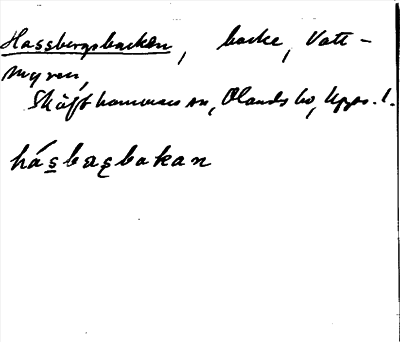 Hassbergsbacken, backe, Vatt-
myren,
Skäfthammars sn, Olands hd, Upps. l.
hásbasbakan